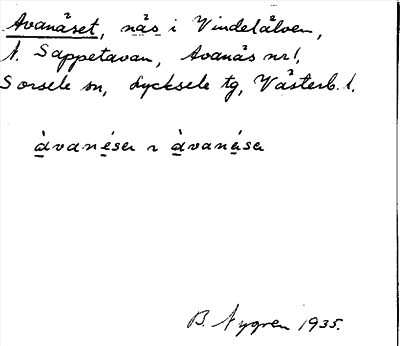 Avanäset, näs i Vindelälven,
N. Sappetavan, Avanäs nr 1,
Sorsele sn, Lycksele tg, Västerb. l.
àvanésen ~ àvanäsen
B. Nygren 1935.